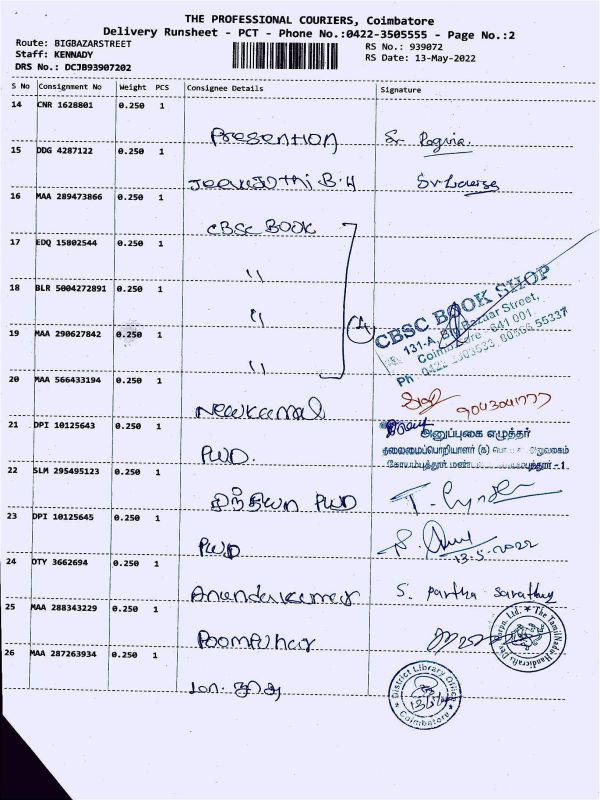 THE PROFESSIONAL COURIERS, Coimbatore
Delivery Runsheet - PCT - Phone No.:0422-3505555 - Page No.:2
Route: BIGBAZARSTREET
RS No.: 939072
Staff: KENNADY
RS Date: 13-May-2022
DRS No.: DCJB93907202
S No Consignment No Weight PCS Consignee Details Signature
14 CNR 1628801 0.250 1
Presention Sr Regina.
15 DDG 4287122 0.250 1
Jeevajothi B.H Sr Lourse
16 MAA 289473866 0.250 1
CBSC BOOK
17 EDQ 15802544 0.250 1
"
18 BLR 5004272891 0.250 1
"
19 MAA 290627842 0.250 1
"
4
CBSC BOOK SHOP
131-A, Big Bazaar Street,
Coimbatore - 641 001.
20 MAA 566433194 0.250 1
Newkamal 9043041777
21 DPI 10125643 0.250 1
PWD.
அனுப்புகை எழுத்தர்
தலைமைப்பொறியாளர் (க)
22 SLM 295495123 0.250 1
PWD
23 DPI 10125645 0.250 1
PWD 13-5-2022
24 OTY 3662694 0.250 1
Anandakumar S. Partha Sarathy
25 MAA 288343229 0.250 1
Poompuhar
26 MAA 287263934 0.250 1
District Library Office
Coimbatore